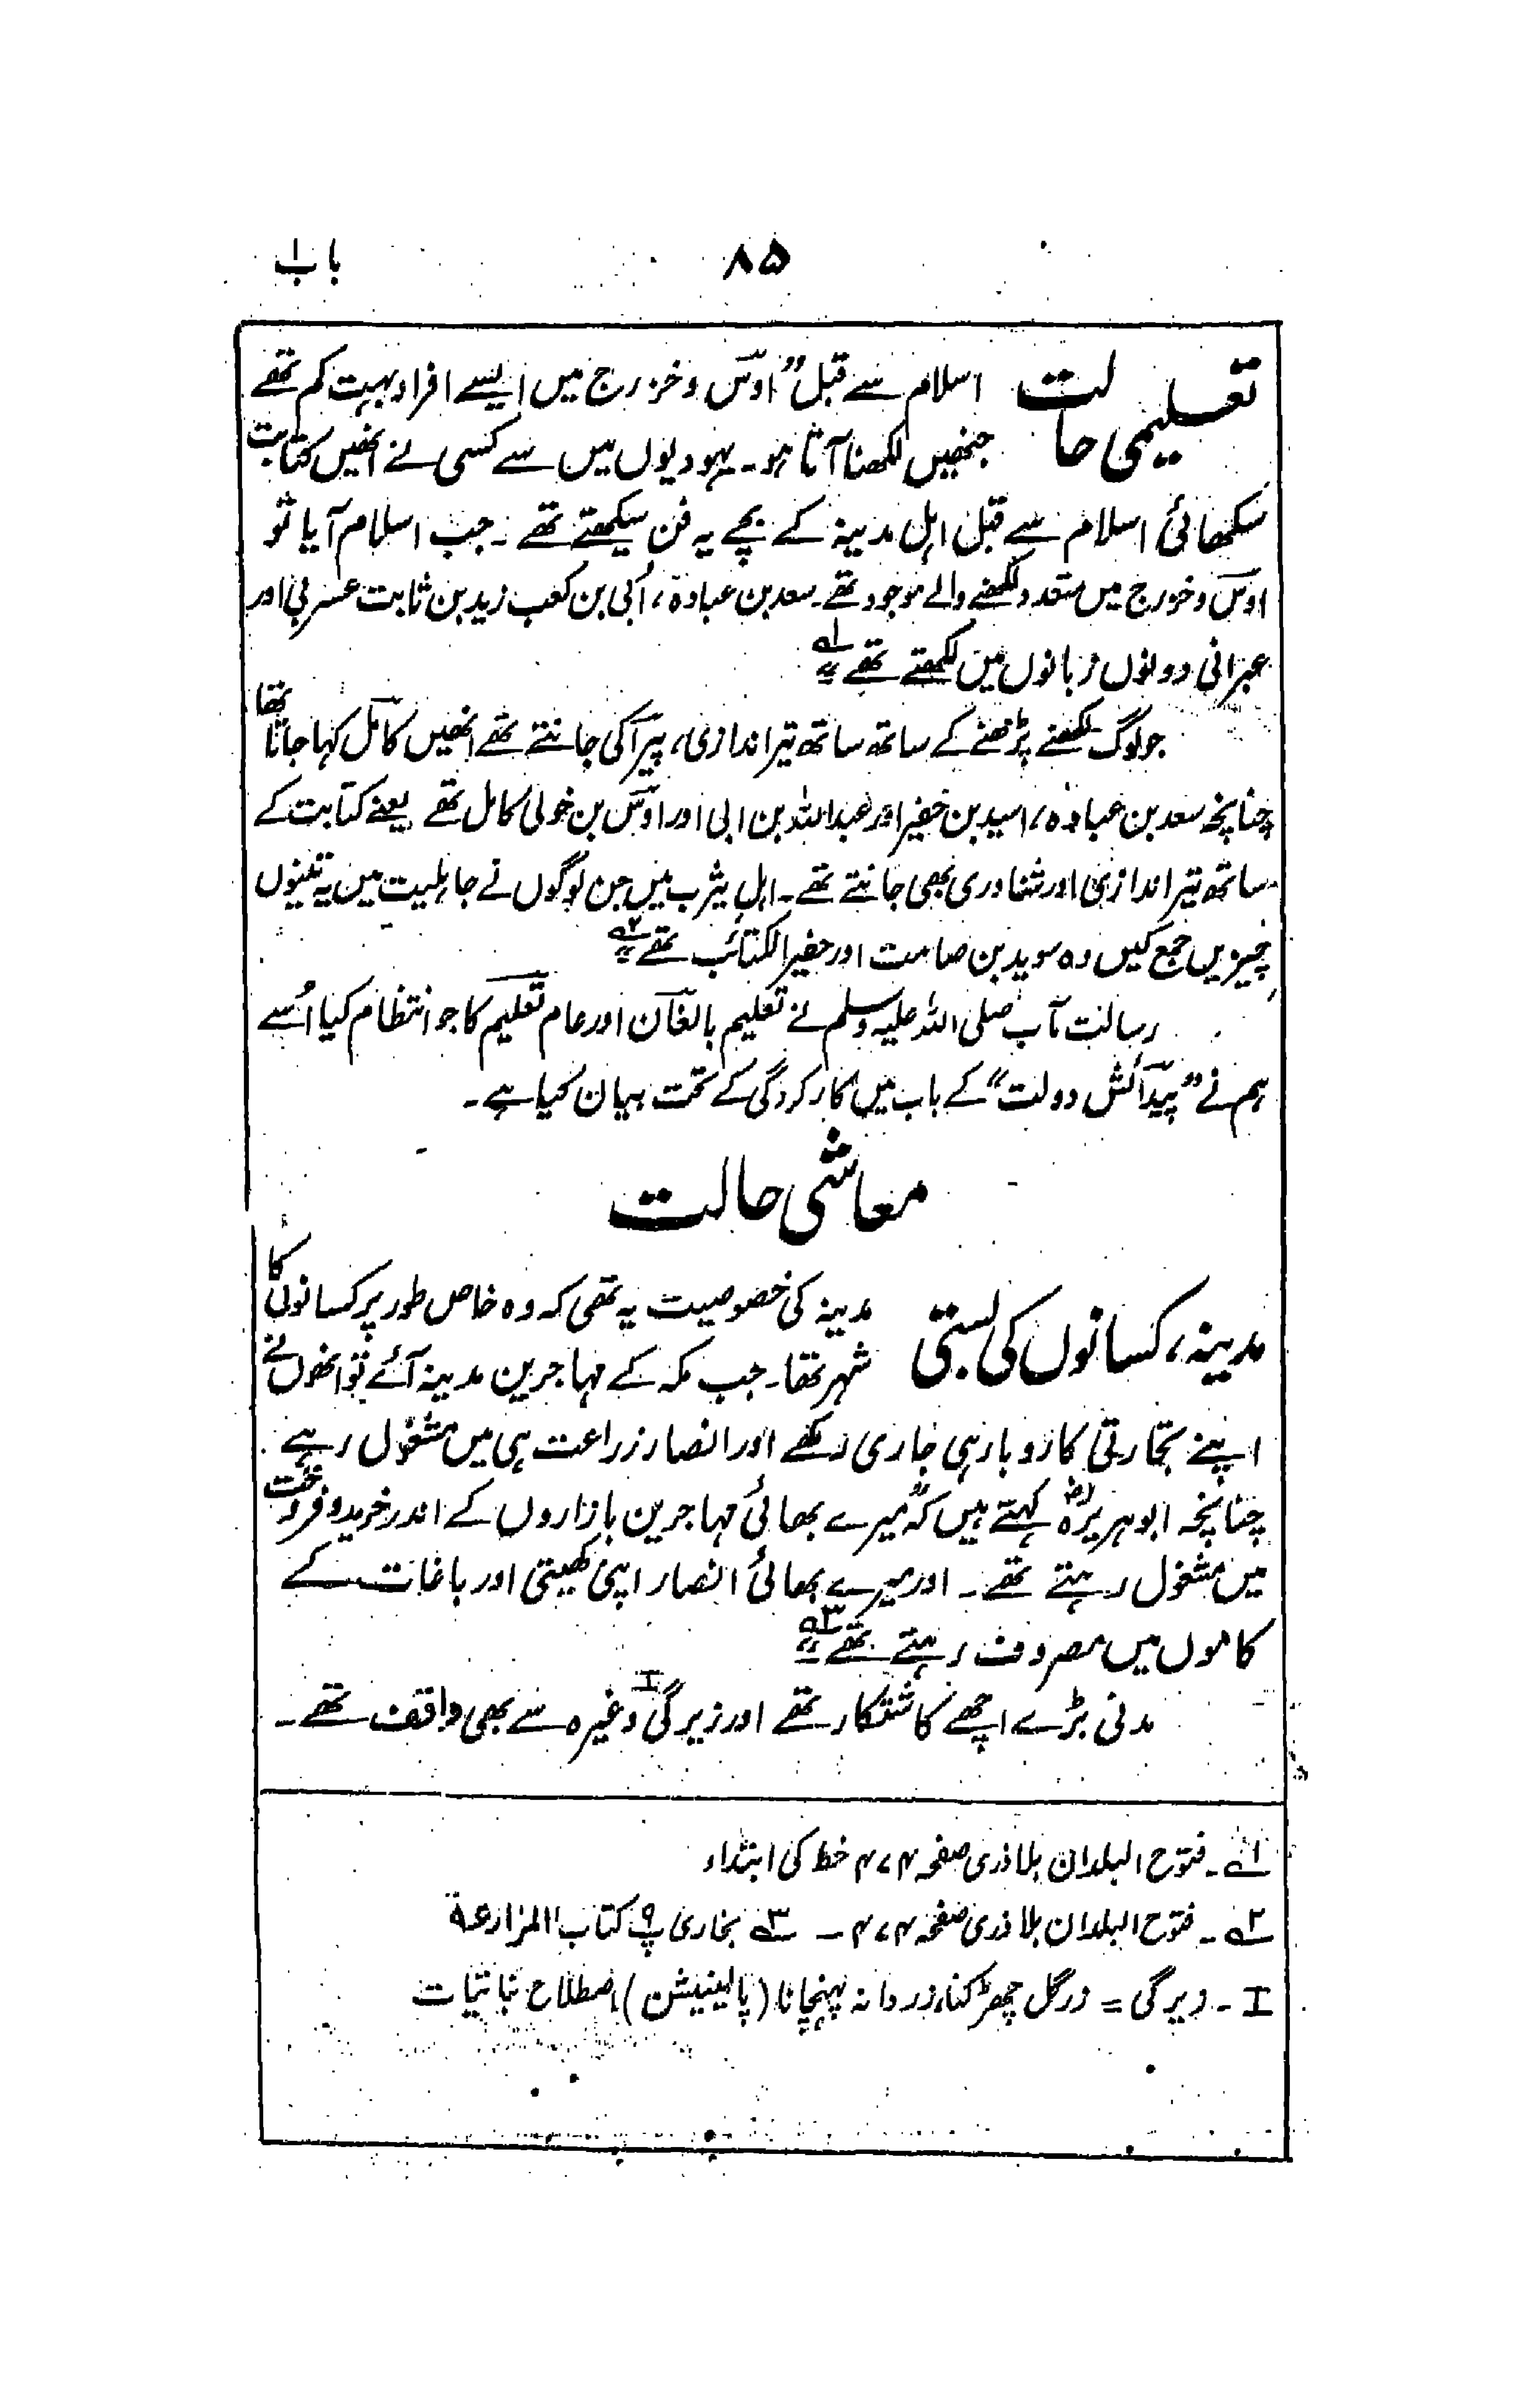 ۸۵ باب ۱
تعلیمی حالت اسلام سے قبل "اوس و خزرج میں ایسے افراد بہت کم تھے
جنھیں لکھنا آتا ہو۔ یہودیوں میں سے کسی نے انھیں کتابت
سکھائی اسلام سے قبل اہل مدینہ کے بچے یہ فن سیکھتے تھے۔ جب اسلام آیا تو
اوس و خزرج میں متعدد لکھنے والے موجود تھے۔ سعد بن عبادہ، اُبی بن کعب زید بن ثابت عربی اور
عبرانی دونوں زبانوں میں لکھتے تھے" ۱ے
جو لوگ لکھنے پڑھنے کے ساتھ ساتھ تیر اندازی، پیراکی جانتے تھے انھیں کامل کہا جاتا تھا
چنانچہ سعد بن عبادہ، اسید بن حضیر اور عبداللہ بن ابی اور اوس بن خولی کامل تھے یعنے کتابت کے
ساتھ تیر اندازی اور شناوری بھی جانتے تھے۔ اہل یثرب میں جن لوگوں نے جاہلیت میں یہ تینوں
چیزیں جمع کیں وہ سوید بن صامت اور حضیر الکتائب تھے" ۲ے
رسالت مآب صلی اللہ علیہ وسلم نے تعلیم بالغان اور عام تعلیم کا جو انتظام کیا اُسے
ہم نے "پیدائش دولت" کے باب میں کارکردگی کے تحت بیان کیا ہے۔
معاشی حالت
مدینہ، کسانوں کی بستی مدینہ کی خصوصیت یہ تھی کہ وہ خاص طور پر کسانوں کا
شہر تھا۔ جب مکہ کے مہاجرین مدینہ آئے تو انھوں نے
اپنے تجارتی کاروبار ہی جاری رکھے اور انصار زراعت ہی میں مشغول رہے
چنانچہ ابو ہریرہؓ کہتے ہیں کہ "میرے بھائی مہاجرین بازاروں کے اندر خرید و فروخت
میں مشغول رہتے تھے۔ اور میرے بھائی انصار اپنی کھیتی اور باغات کے
کاموں میں مصروف رہتے تھے" ۳ے
مدنی بڑے اچھے کاشتکار تھے اور زیرگی I وغیرہ سے بھی واقف تھے۔
۱ے۔ فتوح البلدان بلاذری صفحہ ۴۷۴ خط کی ابتداء
۲ے۔ فتوح البلدان بلاذری صفحہ ۴۷۴ ۔ ۳ے بخاری پ ۹ کتاب المزارعۃ
I ۔ زیرگی = زرگل چھڑکنا، زردانہ پہنچانا (پالینیشن) اصطلاح نباتیات